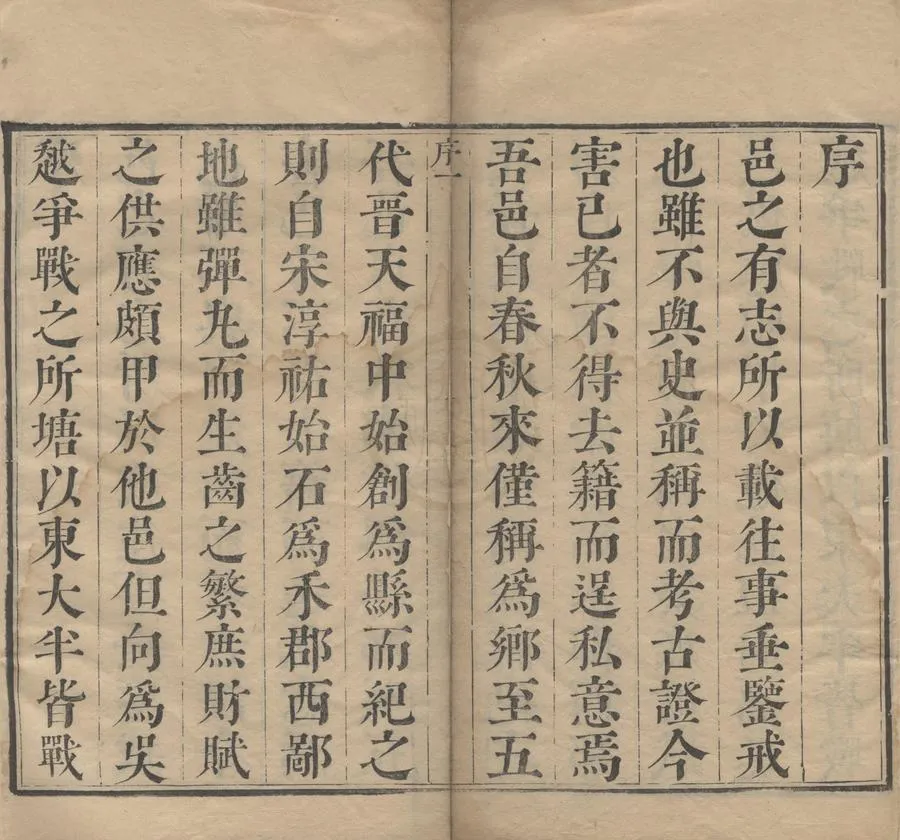 序
邑之有志所以載往事垂鑒戒
也雖不與史並稱而考古證今
害已者不得去籍而逞私意焉
吾邑自春秋來僅稱為鄉至五
序一
代晉天福中始創為縣而紀之
則自宋淳祐始石為禾郡西鄙
地雖彈丸而生齒之繁庶財賦
之供應頗甲於他邑但向為吳
越爭戰之所塘以東大半皆戰